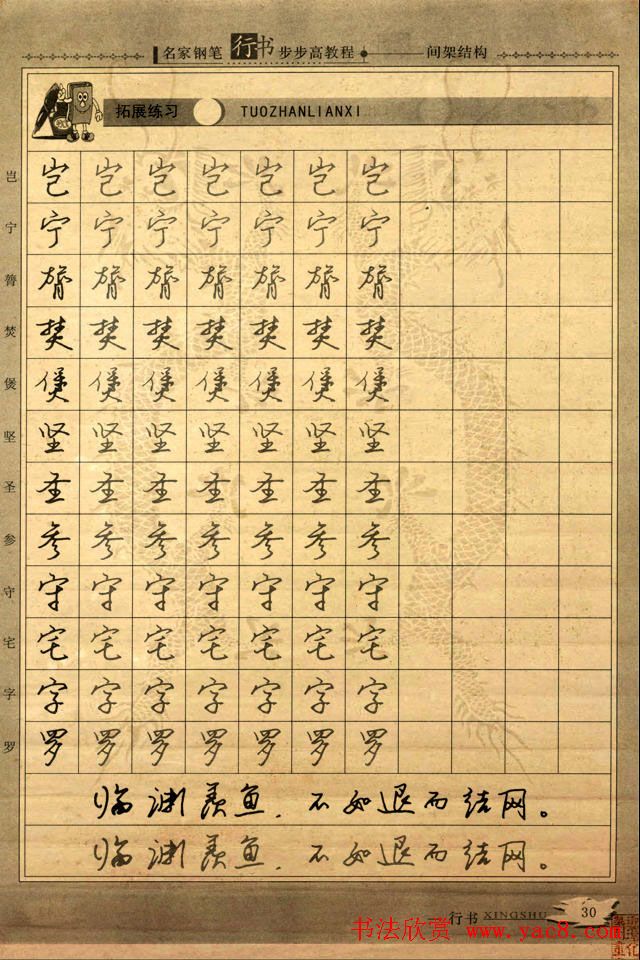 名家钢笔行书步步高教程 间架结构
拓展练习 TUOZHANLIANXI
岂 岂 岂 岂 岂 岂 岂 岂
宁 宁 宁 宁 宁 宁 宁 宁
膂 膂 膂 膂 膂 膂 膂 膂
焚 焚 焚 焚 焚 焚 焚 焚
煲 煲 煲 煲 煲 煲 煲 煲
坚 坚 坚 坚 坚 坚 坚 坚
圣 圣 圣 圣 圣 圣 圣 圣
参 参 参 参 参 参 参 参
守 守 守 守 守 守 守 守
宅 宅 宅 宅 宅 宅 宅 宅
字 字 字 字 字 字 字 字
罗 罗 罗 罗 罗 罗 罗 罗
临渊羡鱼，不如退而结网。
临渊羡鱼，不如退而结网。
行书 XINGSHU 30
书法欣赏 www.yac8.com